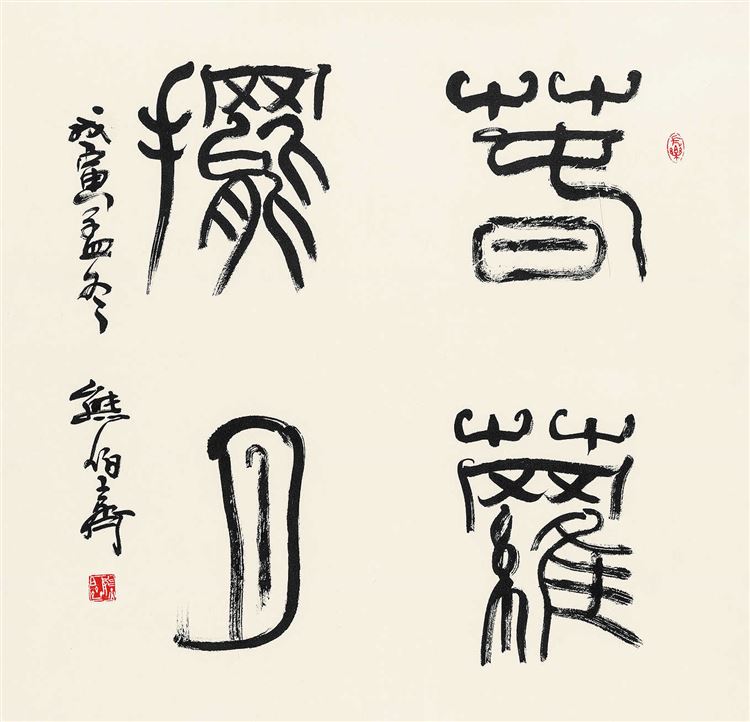 春蘿
擺月
戊寅孟冬 熊伯齊